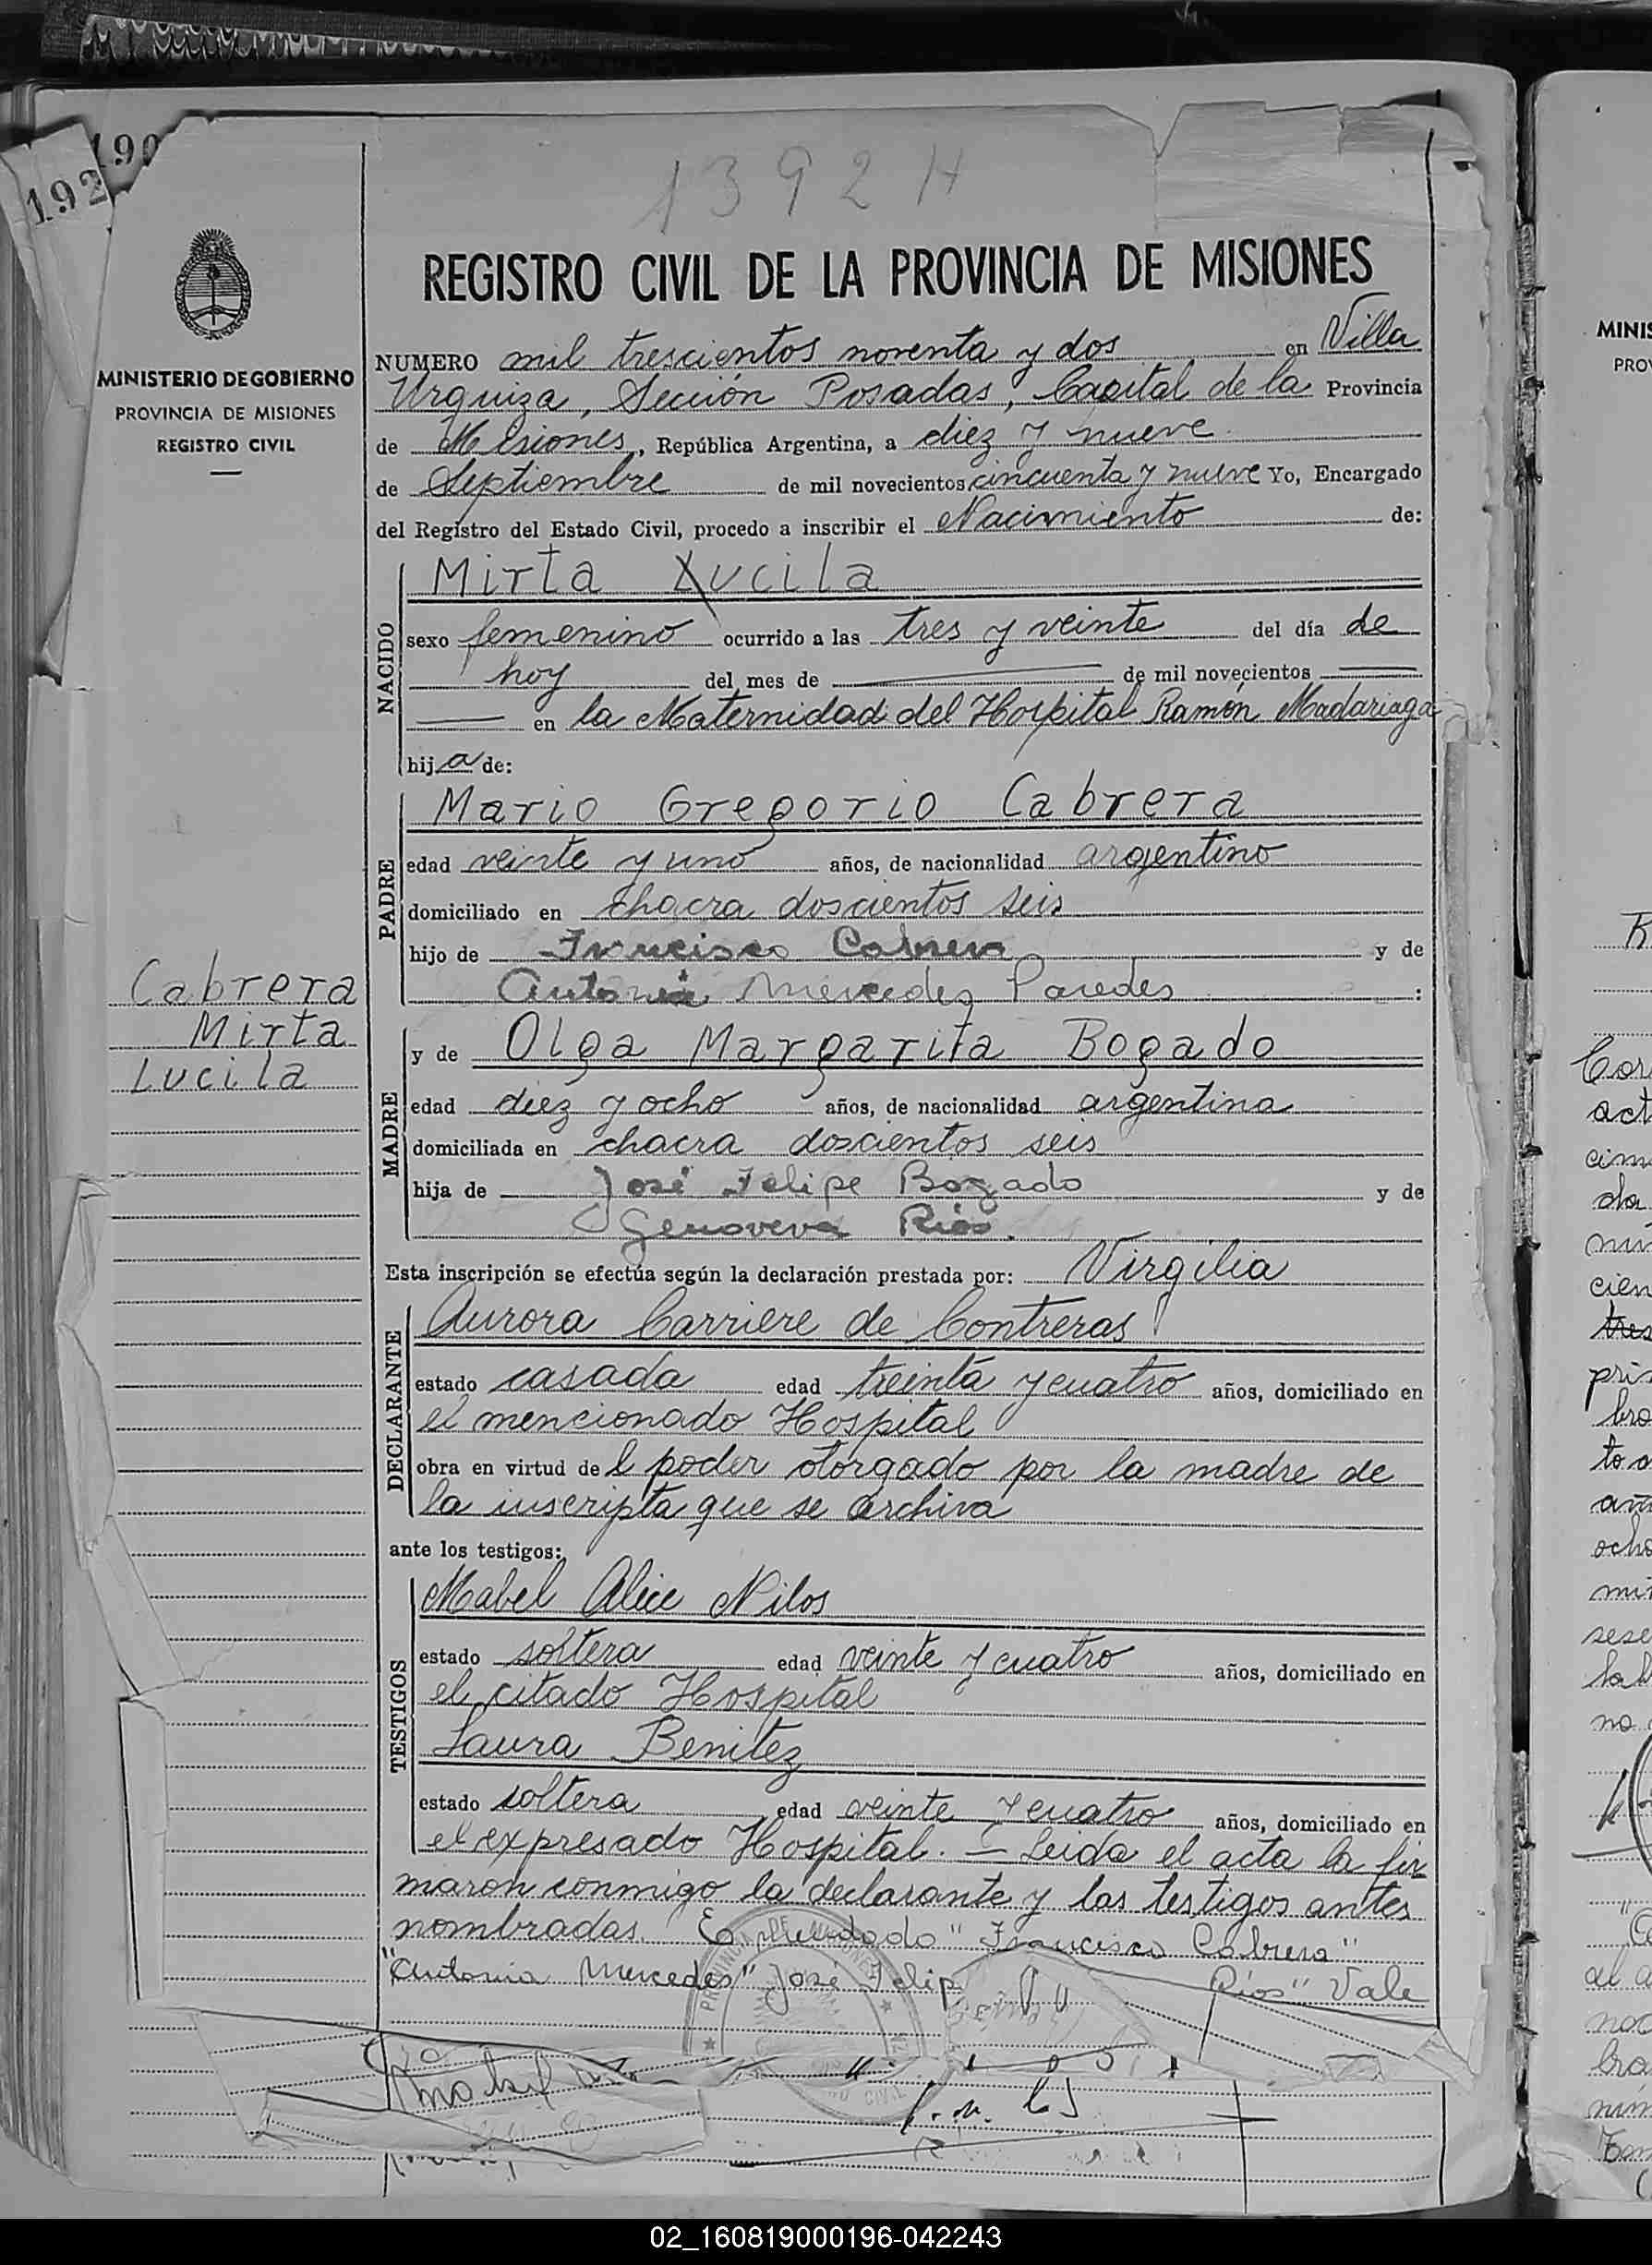 190
192
1392 H
REGISTRO CIVIL DE LA PROVINCIA DE MISIONES
MINISTERIO DE GOBIERNO
PROVINCIA DE MISIONES
REGISTRO CIVIL
NUMERO mil trescientos noventa y dos en Villa
Urquiza, Sección Posadas, Capital de la Provincia
de Misiones, República Argentina, a diez y nueve
de Septiembre de mil novecientos cincuenta y nueve Yo, Encargado
del Registro del Estado Civil, procedo a inscribir el Nacimiento de:
NACIDO
Mirta Lucila
sexo femenino ocurrido a las tres y veinte del día de
hoy del mes de de mil novecientos
en la Maternidad del Hospital Ramón Madariaga
hija de:
PADRE
Mario Gregorio Cabrera
edad veinte y uno años, de nacionalidad argentino
domiciliado en chacra doscientos seis
hijo de Francisco Cabrera y de
Antonia Mercedes Paredes :
Cabrera
Mirta
Lucila
MADRE
y de Olga Margarita Bogado
edad diez y ocho años, de nacionalidad argentina
domiciliada en chacra doscientos seis
hija de José Felipe Bogado y de
Genoveva Ríos.
Esta inscripción se efectúa según la declaración prestada por: Virgilia
DECLARANTE
Aurora Carriere de Contreras
estado casada edad treinta y cuatro años, domiciliado en
el mencionado Hospital
obra en virtud del poder otorgado por la madre de
la inscripta que se archiva
ante los testigos:
TESTIGOS
Mabel Alice Nilos
estado soltera edad veinte y cuatro años, domiciliado en
el citado Hospital
Laura Benitez
estado soltera edad veinte y cuatro años, domiciliado en
el expresado Hospital. - Leida el acta la fir
maron conmigo la declarante y las testigos antes
nombradas. Enmendado "Francisco Cabrera"
"Antonia Mercedes" José Felip Ríos" Vale
MINIS
PRO
02_160819000196-042243